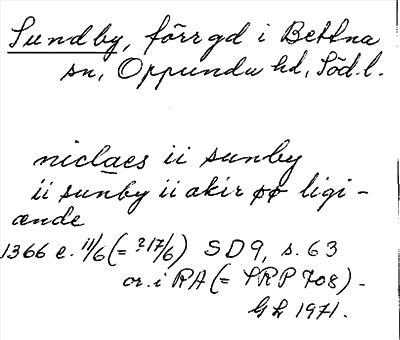 Sundby, förr gd i Bettna
sn, Oppunda hd, Söd.l.
niclaes ii sunby
ii sunby ii akir øø ligi-
ænde
1366 e. 11/6 (= ? 17/6) SD 9, s. 63
or. i RA (= SRP 708).
GL 1971.